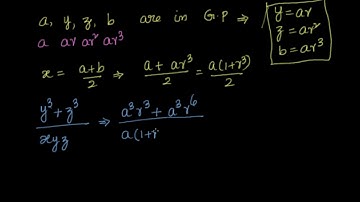 a, y, z, b are in G.P ⇒
y = ar
z = ar²
b = ar³
a ar ar² ar³
x = (a+b)/2 ⇒ (a + ar³)/2 = a(1+r³)/2
(y³ + z³)/(xyz) ⇒ (a³r³ + a³r⁶)/(a(1+r